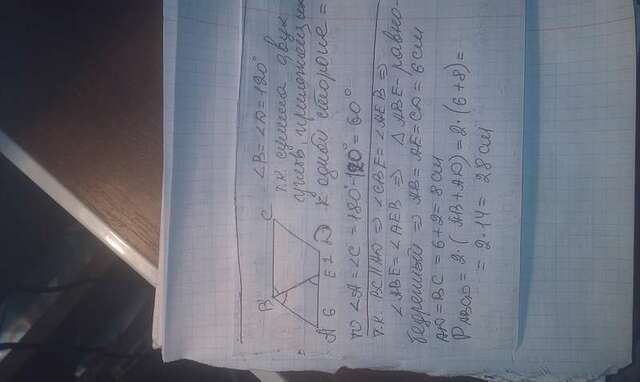 ∠B = ∠D = 120°
т.к. сумма двух
углов, прилежащих
к одной стороне =
B C
A 6 E 2 D
то ∠A = ∠C = 180° - 120° = 60°
т.к. BC || AD => ∠CBE = ∠AEB =>
∠ABE = ∠AEB => △ ABE - равно-
бедренный => AB = AE = CD = 6 см
AD = BC = 6 + 2 = 8 см
P ABCD = 2 · (AB + AD) = 2 · (6 + 8) =
= 2 · 14 = 28 см